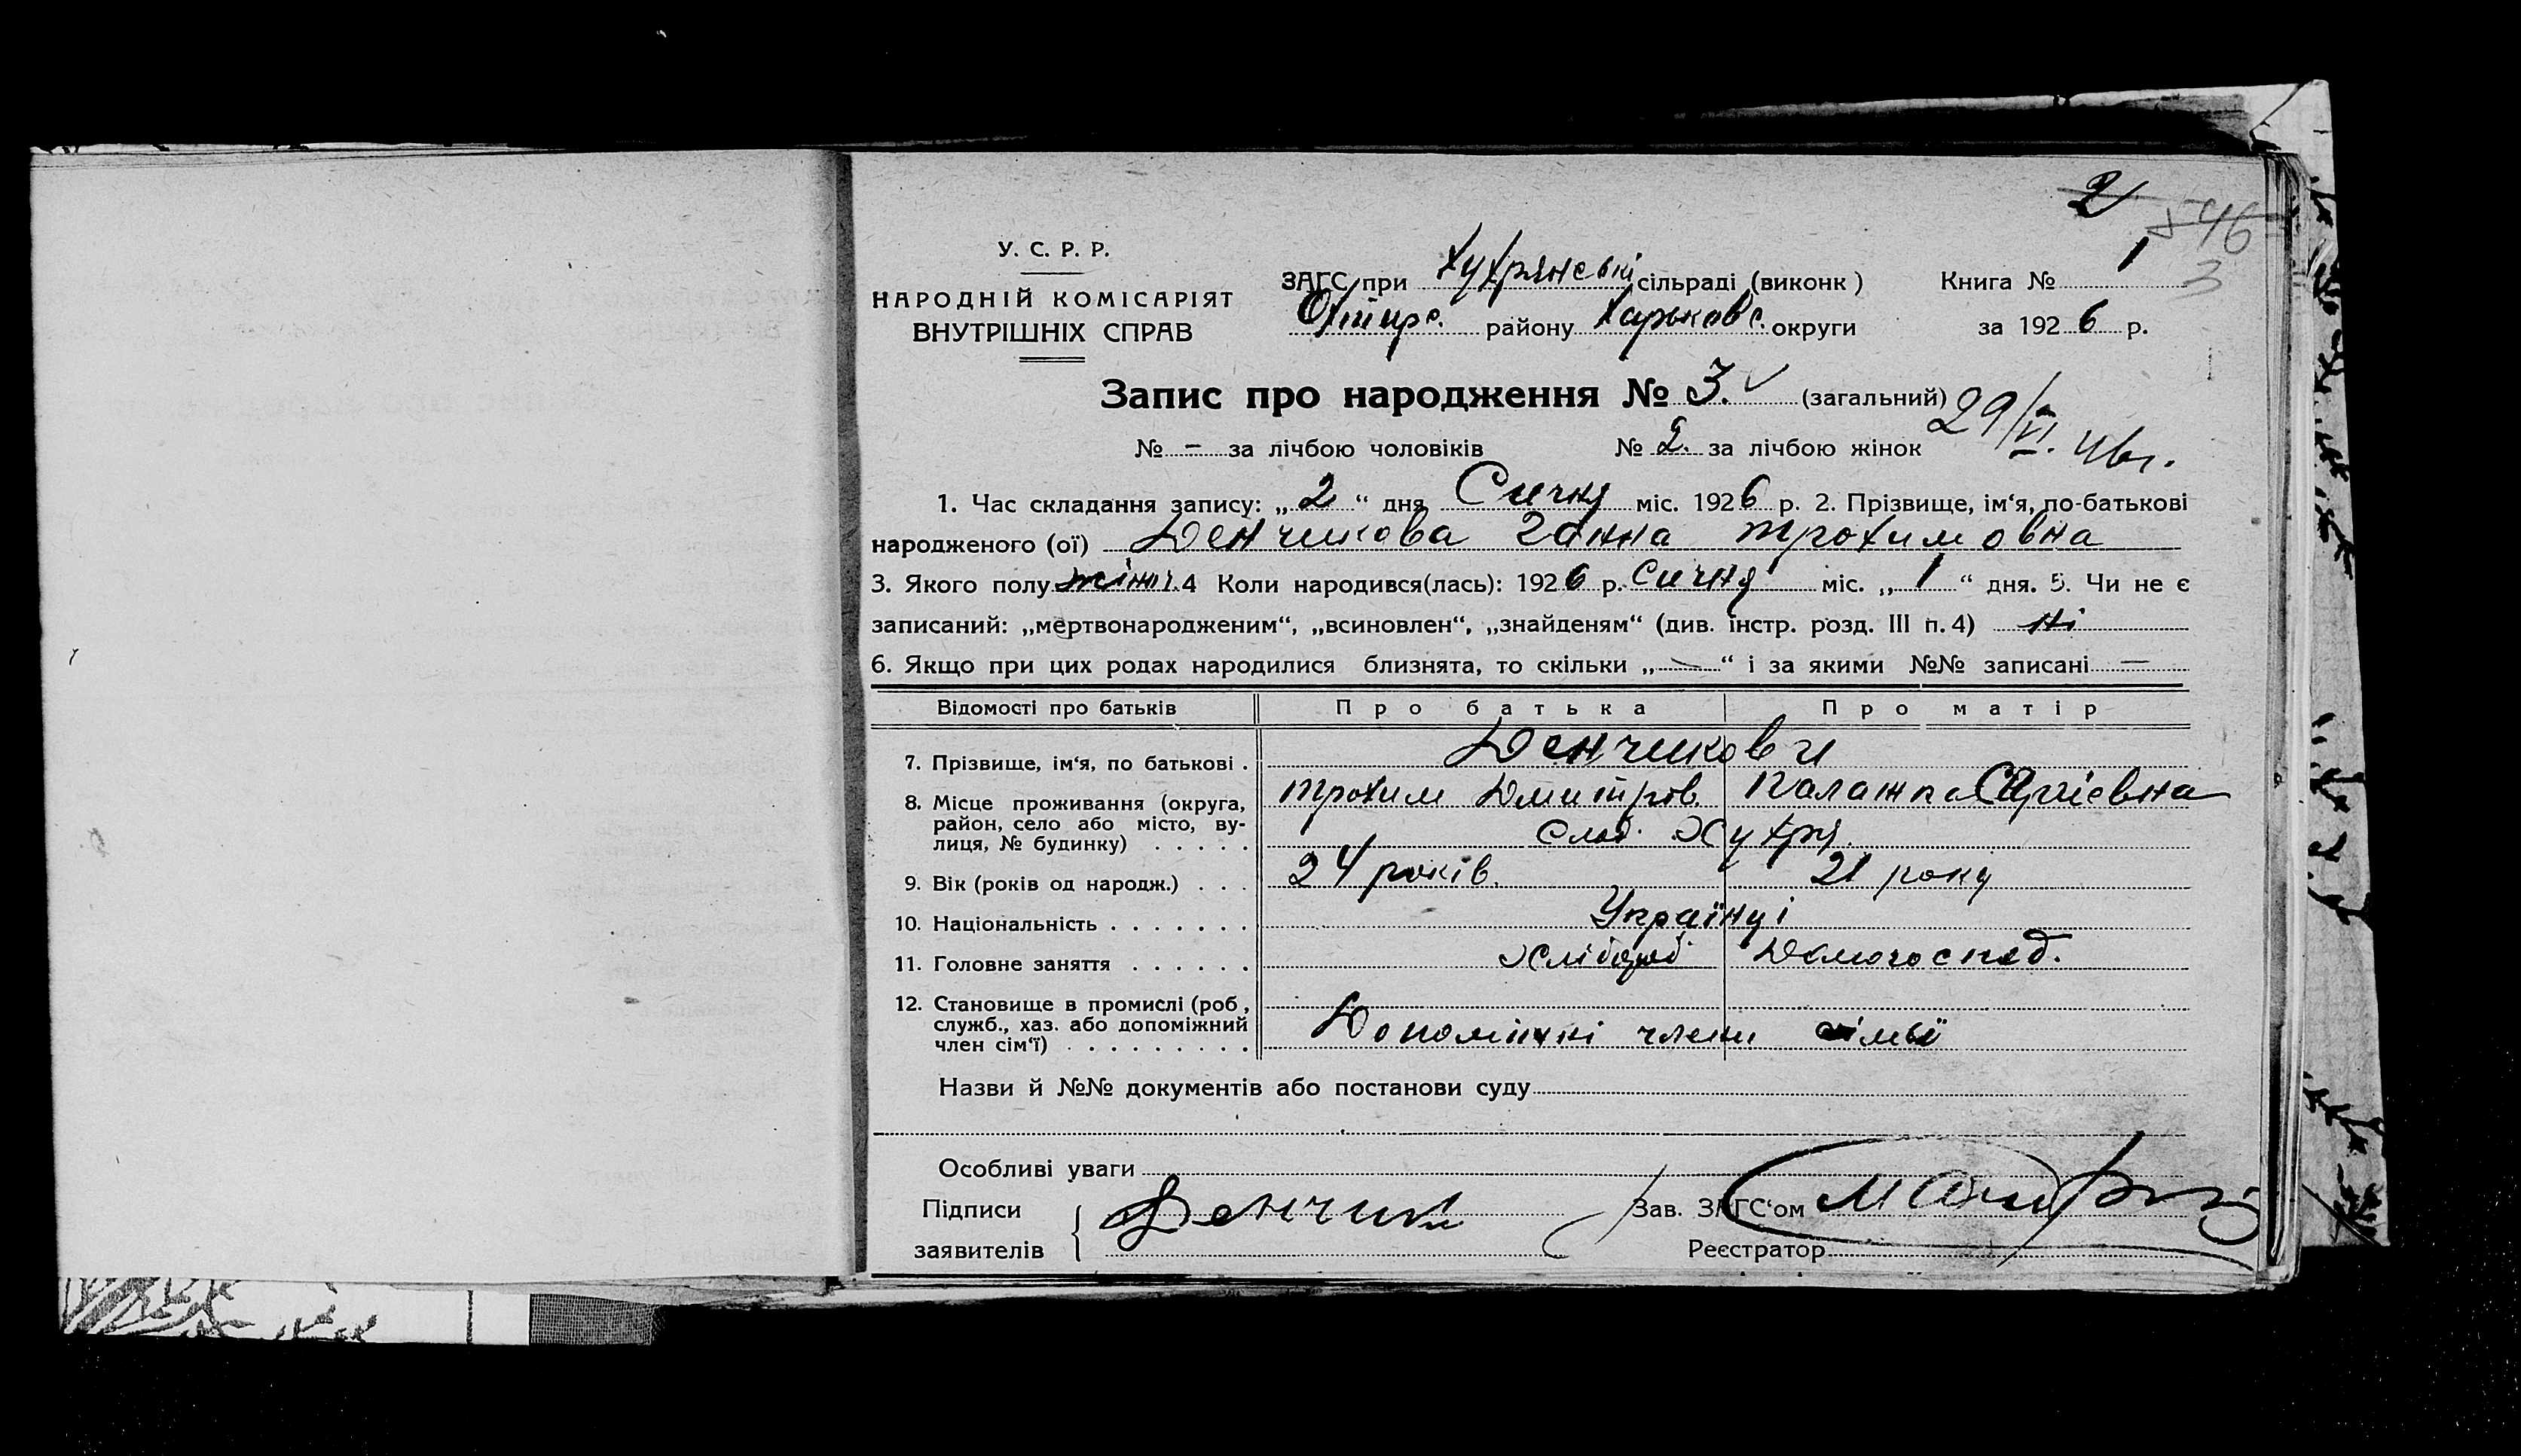 2
546
3
У. С. Р. Р.
НАРОДНІЙ КОМІСАРІЯТ
ВНУТРІШНІХ СПРАВ
ЗАГС при Хухрянські сільраді (виконк )
Охтирс. району Харьковс. округи
Книга № 1
за 1926 р.
Запис про народження № 3. (загальний)
29/VI. 46г.
№ – за лічбою чоловіків № 2. за лічбою жінок
1. Час складання запису: „ 2 “ дня Січня міс. 1926 р. 2. Прізвище, ім‘я, по-батькові
народженого (ої) Денчикова Ганна Трохимовна
3. Якого полу жіноч. 4 Коли народився(лась): 1926 р. Січня міс. „ 1 “ дня. 5. Чи не є
записаний: „мертвонародженим“, „всиновлен“, „знайденям“ (див. інстр. розд. III п. 4) ні
6. Якщо при цих родах народилися близнята, то скільки „ — “ і за якими №№ записані —
Відомості про батьків Про батька Про матір
7. Прізвище, ім‘я, по батькові . Денчикови
8. Місце проживання (округа, район, село або місто, ву-
лиця, № будинку) . . . . .
Трохим Дмитров. Палажка Сергієвна
Слоб. Хухря.
9. Вік (років од народж.) . . . 24 років. 21 року
10. Національність . . . . . . . Українці
11. Головне заняття . . . . . . Хлібороб Домогоспод.
12. Становище в промислі (роб,
служб., хаз. або допоміжний
член сім‘ї) . . . . . . . . .
Допоміжні члени сімьї
Назви й №№ документів або постанови суду
Особливі уваги
Підписи
заявителів
Денчик
Зав. ЗАГС‘ом
Реєстратор